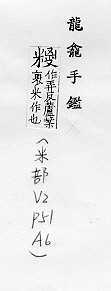 龍龕手鑑
作弄反蘆葉
裹米作也
(米部 V2 P51 A6)